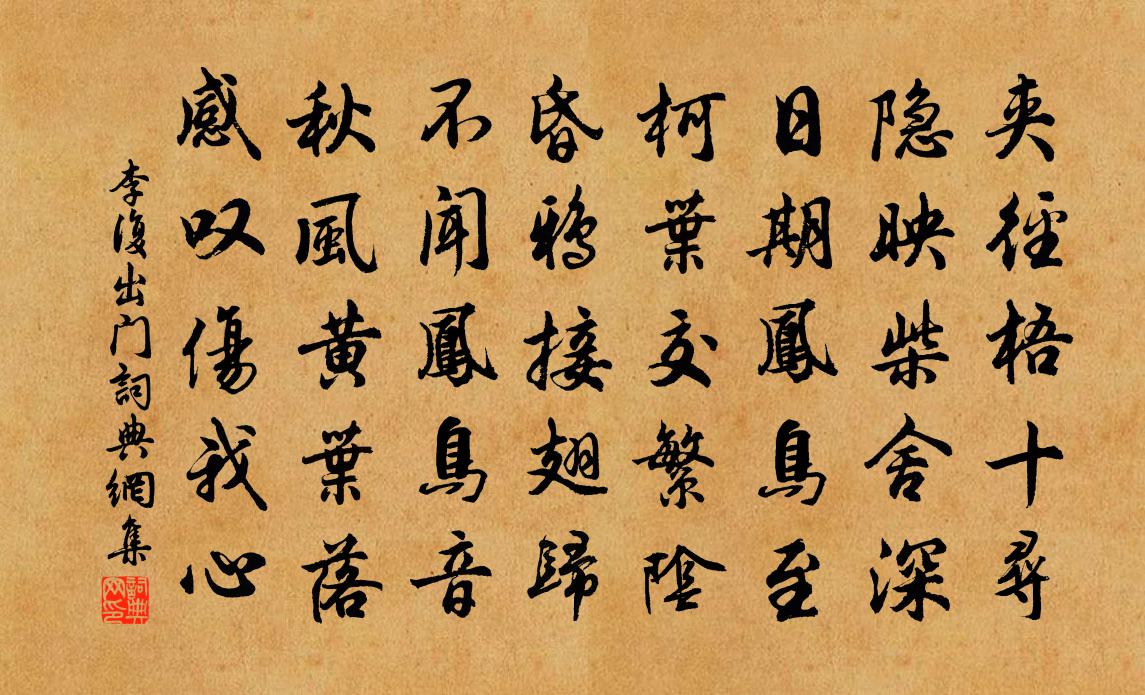 夾徑梧十尋
隐映柴舍深
日期鳳鳥至
柯葉交繁陰
昏鴉接翅歸
不聞鳳鳥音
秋風黃葉落
感叹傷我心
李復出门詞典網集
詞典网印